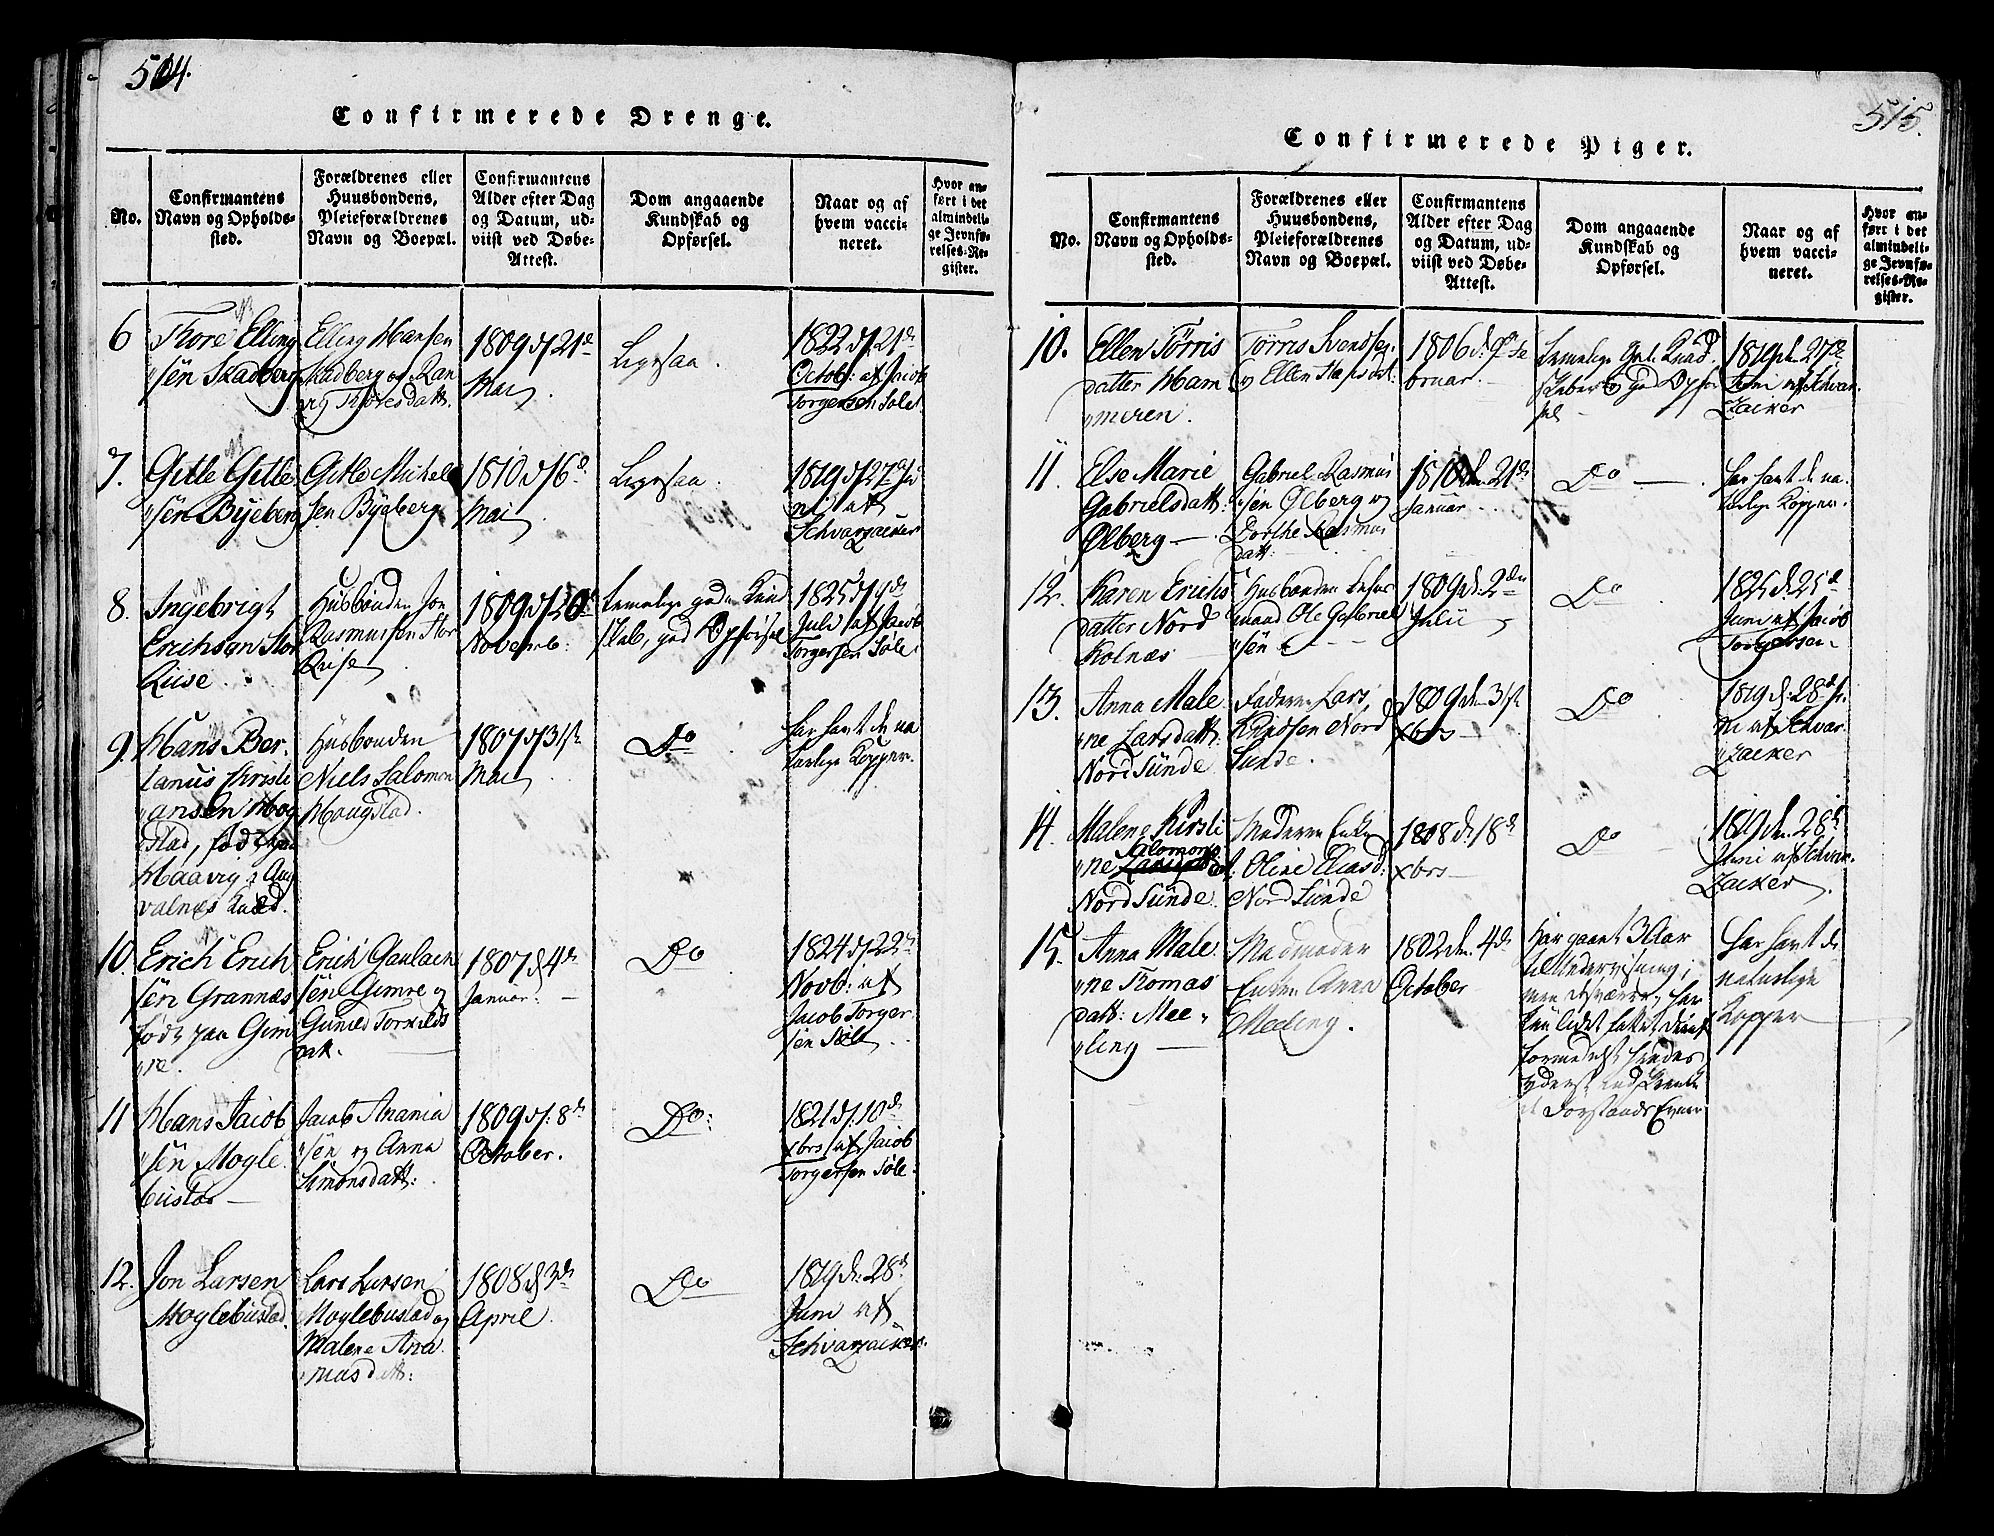 514.
Confirmerede Drenge.
No.
Confirmantens
Navn og Opholds-
sted.
Forældrenes eller
Huusbondens,
Pleieforældrenes
Navn og Boepæl.
Confirmantens
Alder efter Dag
og Datum, ud-
viist ved Døbe-
Attest.
Dom angaaende
Kundskab og
Opførsel.
Naar og af
hvem vacci-
neret.
Hvor an-
ført i det
almindeli-
ge Jevnfø-
relses-Re-
gister.
6
Thore Elling
sen Skadberg
Elling Hansen
Skadberg og Ran
vig Thoresdatt.
1809 d 21de
Mai
Ligesaa.
1822 d 21de
Octob: af Jacob
Torgersen Sole
7.
Gitle Gitle
sen Byeberg
Gitle Michel
sen Byeberg
1810 d 6te
Mai
Ligesaa.
1819 d 27de Ju
ni af
Schvarzacker
8.
Ingebrigt
Erichsen Stor
Qiise.
Husbonden Jon
Rasmussen Stor
Qiise
1809 d 20de
Novemb:
Temelige gode Kund
skab, god Opførsel
1825 d
Juli af Jacob
Torgersen Sole
9.
Hans Ber.
tanus Christi
ansen Hog
stad, fød paa
Haavig i Aug
valnæs
Husbonden
Niels Salomon
Haugstad.
1807 d 31te
Mai
Do
har havt de na
turlige Kopper.
10.
Erich Erich
sen Grannæs
født paa Gim
re.
Erich Gaulach
sen Gimre og
Gunild Torkilds
datt.
1807 d 4de
Januar:
Do
1824 d 22de
Novb: af
Jacob Torger
sen Sole
11
Hans Jacob
sen Mogle
bustad
Jacob Anania
sen og Anna
Simonsdatt:
1809 d: 8de
October.
Do:
1821 d: 10de
xbrs af Jacob
Torgersen Sole.
12.
Jon Larsen
Moglebustad.
Lars Larsen
Moglebustad og
Malene Ana
niasdatt:
1808 d 3de
April
Do
1819 d: 28de
Juni af
Schvarzacker.
515.
Confirmerede Piger.
No.
Confirmantens
Navn og Opholds-
sted.
Forældrenes eller
Huusbondens,
Pleieforældrenes
Navn og Boepæl.
Confirmantens
Alder efter Dag
og Datum, ud-
viist ved Døbe-
Attest.
Dom angaaende
Kundskab og
Opførsel.
Naar og af
hvem vacci-
neret.
Hvor an-
ført i det
almindeli-
ge Jevnfø-
relses-Re-
gister.
10.
Ellen Törris
datter Ham
meren.
Törris Svendsen
og Ellen
1806 d: 9de Fe
bruar.
Temelige gode Kund
skaber og god Opfør
sel
1819 d. 27de
Juni af Schvar
zacker
11.
Else Marie
Gabrielsdatt:
Ølberg
Gabriel Rasmus
sen Ølberg og
Dorthe Rasmus
datt:
1810 d. 21de
Januar
Do
har havt de na
turlige Kopper.
12.
Karen Erichs
datter Nord
Kolnæs
Husbonden
Ole Gabriel
sen
1809 d. 2den
Julii
Do
1825 d. 25de
Juni af Jacob
Torgersen
13.
Anna Male
ne Larsdatt:
Nord Sunde
Faderen Lars
Knudsen Nord
Sunde.
1809 d. 31te
xbrs
Do
1819 d. 28de Ju
ni af Schvar
zacker
14.
Malene Kirsti
Salomons
ne datt:
Nord Sunde.
Moderen Enke
Oline Eliasd:
Nord Sunde
1808 d. 18de
xbrs
Do
1819 d. 28de
Juni af Schvar
zacker.
15.
Anna Male
ne Thomas
datt: Mee
ling
Madmoder
Enken Anna
Meeling.
1802 den 4de
October
Har gaaet 3 Aar
til Underviisning,
men desværre, har
kun lidet fattet deraf
formedelst hendes
yderst
Forstands Evner
har havt de
naturlige
Kopper